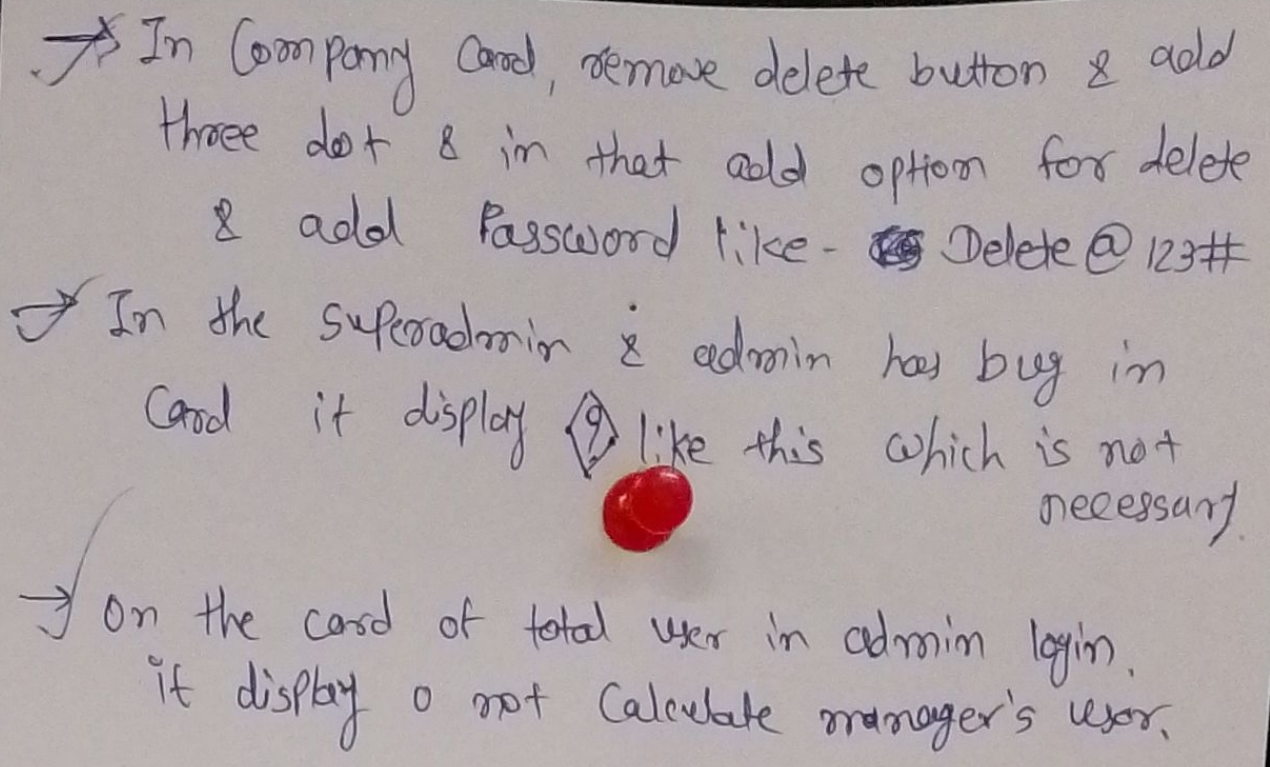 → In Company Card, remove delete button & add
three dot & in that add option for delete
& add Password like - Delete @ 123#
→ In the superadmin & admin has bug in
Card it display like this which is not
necessary.
→ on the card of total user in admin login.
it display 0 not Calculate manager's user.